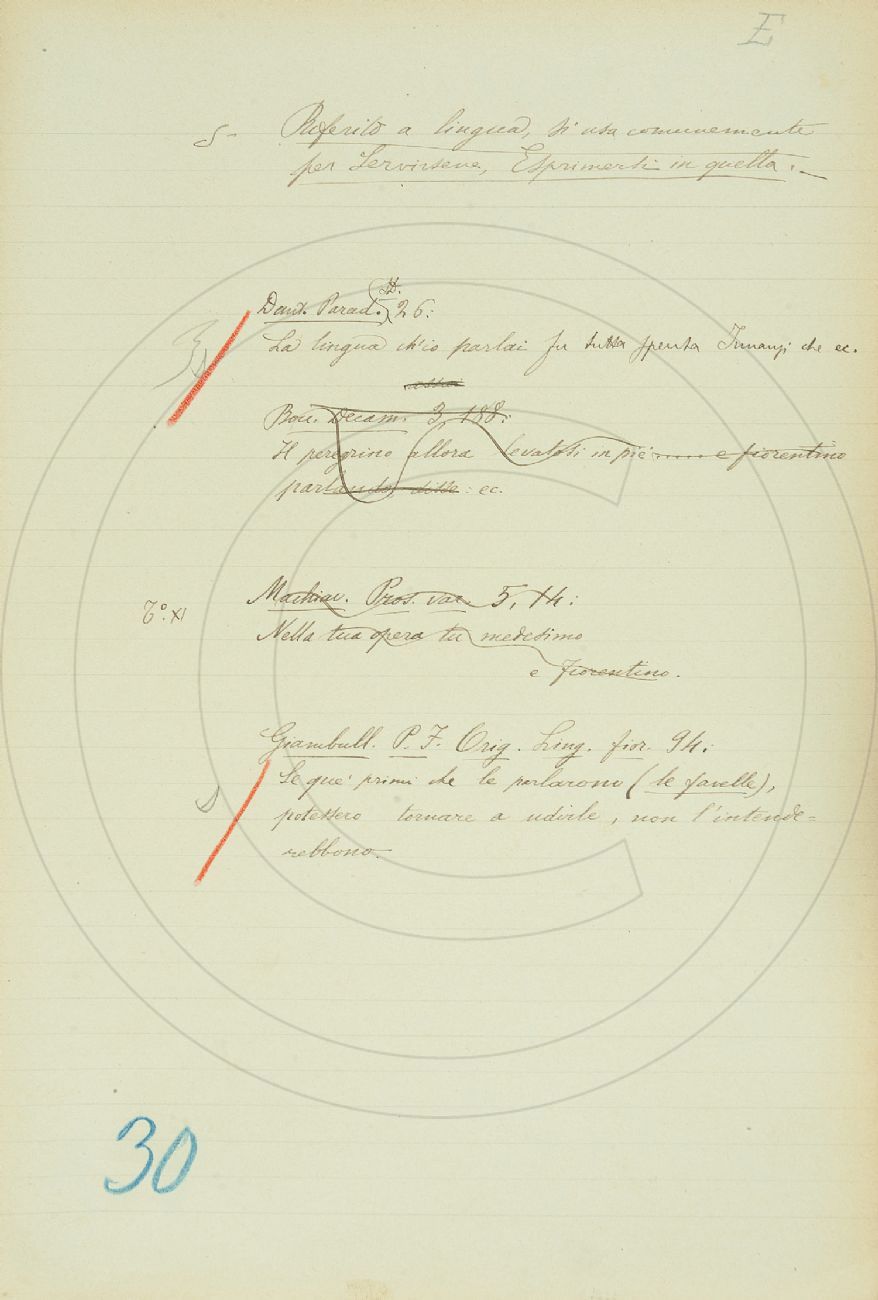 E
S - Riferito a lingua, si usa comunemente
per Servirsene, Esprimersi in quella. -
D.
Dant. Parad. 26:
La lingua ch'io parlai fu tutta spenta Innanzi che ec.
Bocc. Decam. 3, 188:
Il peregrino allora levatosi in piè ...... e fiorentino
parlando, disse: ec.
T.° XI
Machiav. Pros. var. 5, 14:
Nella tua opera tu medesimo
e fiorentino.
Giambull. P. F. Orig. Ling. fior. 94:
Se que' primi che le parlarono (le favelle),
potessero tornare a udirle, non l'intende-
rebbono.
30